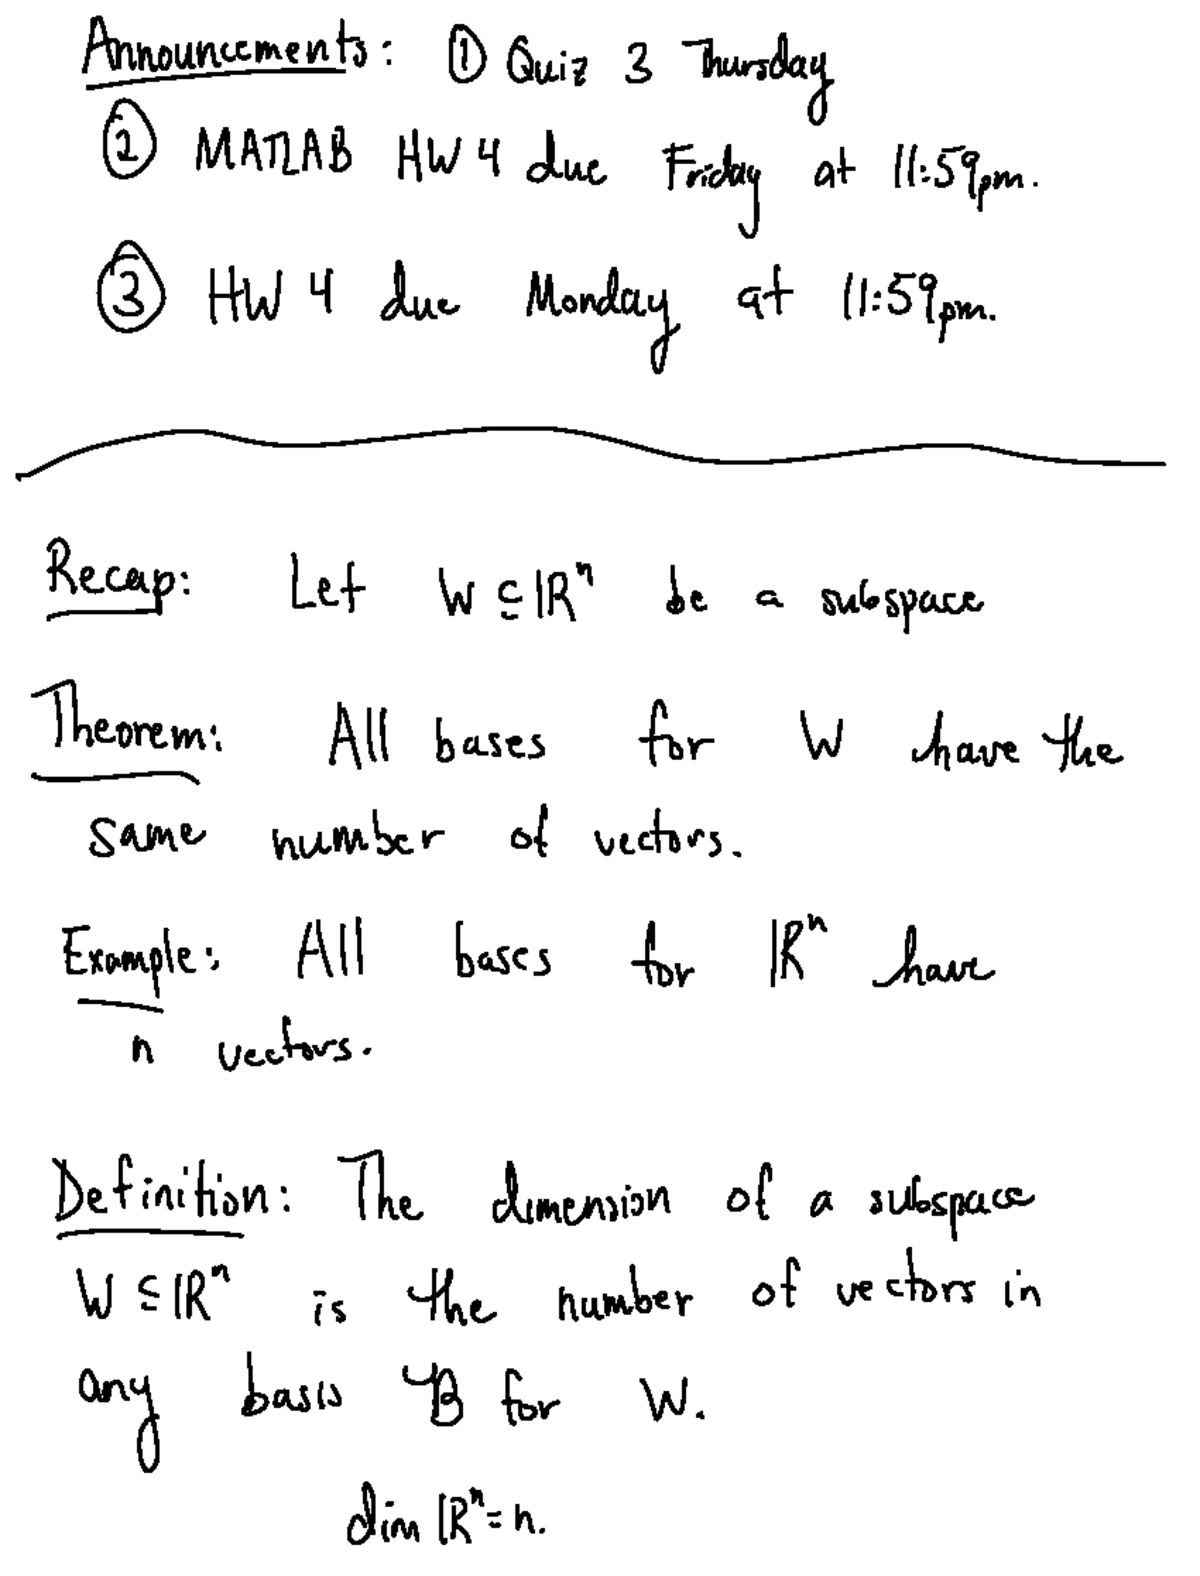 Announcements: ① Quiz 3 Thursday
② MATLAB HW 4 due Friday at 11:59pm.
③ HW 4 due Monday at 11:59pm.
Recap: Let W ⊆ ℝⁿ be a subspace
Theorem: All bases for W have the
same number of vectors.
Example: All bases for ℝⁿ have
n vectors.
Definition: The dimension of a subspace
W ⊆ ℝⁿ is the number of vectors in
any basis ℬ for W.
dim ℝⁿ = n.